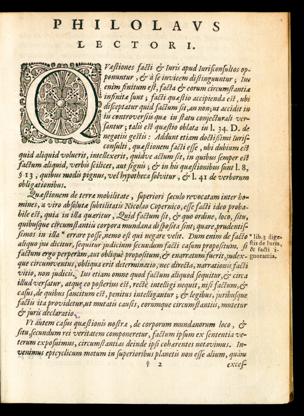 PHILOLAVS
LECTORI.
QVæstiones facti & iuris apud iurisconsultos op-
ponuntur, & à se invicem distinguuntur; ius
enim finitum est, facta & eorum circumstantiæ
infinita sunt; facti quæstio accipienda est, ubi
disceptatur quid factum sit, an non; ut accidit in
in controversiis quæ in statu conjecturali ver-
santur; talis est quæstio oblata in l. 34. D. de
negotiis gestis: Addunt etiam doctissimi iuris-
consulti, quæstionem facti esse, ubi dubium est
quid aliquid voluerit, intellexerit, quidve actum sit, in quibus semper est
factum aliquid, verbis scilicet, aut signis; & in his quæstionibus sunt l. 8,
§ 13, quibus modis pignus, vel hypotheca solvitur, & l. 41 de verborum
obligationibus.
Quæstionem de terra mobilitate, superiori seculo revocatam inter ho-
mines, a viro absoluta subtilitatis Nicolao Copernico, esse facti adeo proba-
bile est, quia in illa quæritur, Quid factum sit, & quo ordine, loco, situ,
quibusque circumstantiis corpora mundana disposita sint;
errare posse, nemo est qui negare velit. Dum enim de facto
aliquo jus dicitur, sequitur judicium secundum facti casum propositum.
factum ergo perperam, aut obliquè propositum, & enarratum fuerit, judex-
que circumventus, obliqua erit determinatio, nec directa, narrationis facti
vitio, non judicii. Ius etiam omne quod factum aliquod sequitur, & circa
illud versatur, atque eo posterius est, rectè intelligi nequit, nisi factum, &
casus, de quibus sancitum est, penitus intelligantur; & legibus, juribusque
factis ita provideatur, ut mutatis causis, eorumque circumstantiis, mutetur
& juris declaratio.
Vt autem casus quæstionis nostræ, de corporum mundanorum loco, &
situ, secundum rei veritatem componeretur, factum ipsum ex sententia ve-
terum exposuimus, circumstantias deinde ipsi cohærentes notavimus. In-
venimus epicyclicum motum in superioribus planetis non esse alium, quàm
§ 2
exces-
* lib. 3 dige-
stis de Iuris,
& facti i-
gnorantia.